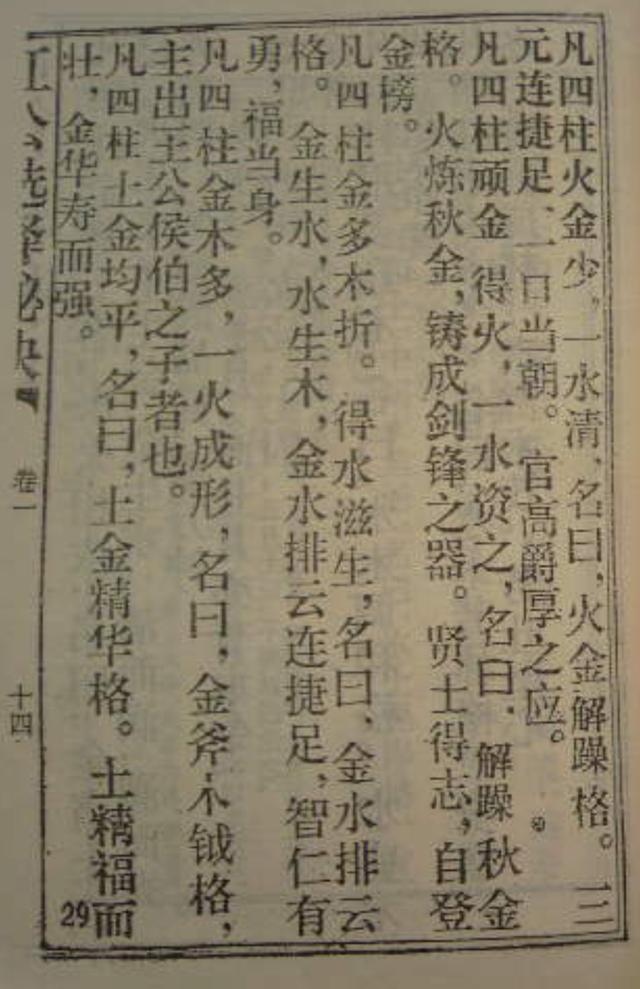 凡四柱火金少，一水清，名曰，火金解躁格。三
元连捷足、一日当朝。官高爵厚之应。
凡四柱顽金得火，一水资之，名曰．解躁秋金
格。火炼秋金，铸成剑锋之器。贤士得志，自登
金榜。
凡四柱金多木折。得水滋生，名曰、金水排云
格。金生水，水生木，金水排云连捷足，智仁有
勇，福当身。
凡四柱金木多，一火成形，名曰，金斧木钺格，
主出王公侯伯之子者也。
凡四柱土金均平，名曰，土金精华格。土精福而
壮，金华寿而强。
卷一
十四
29